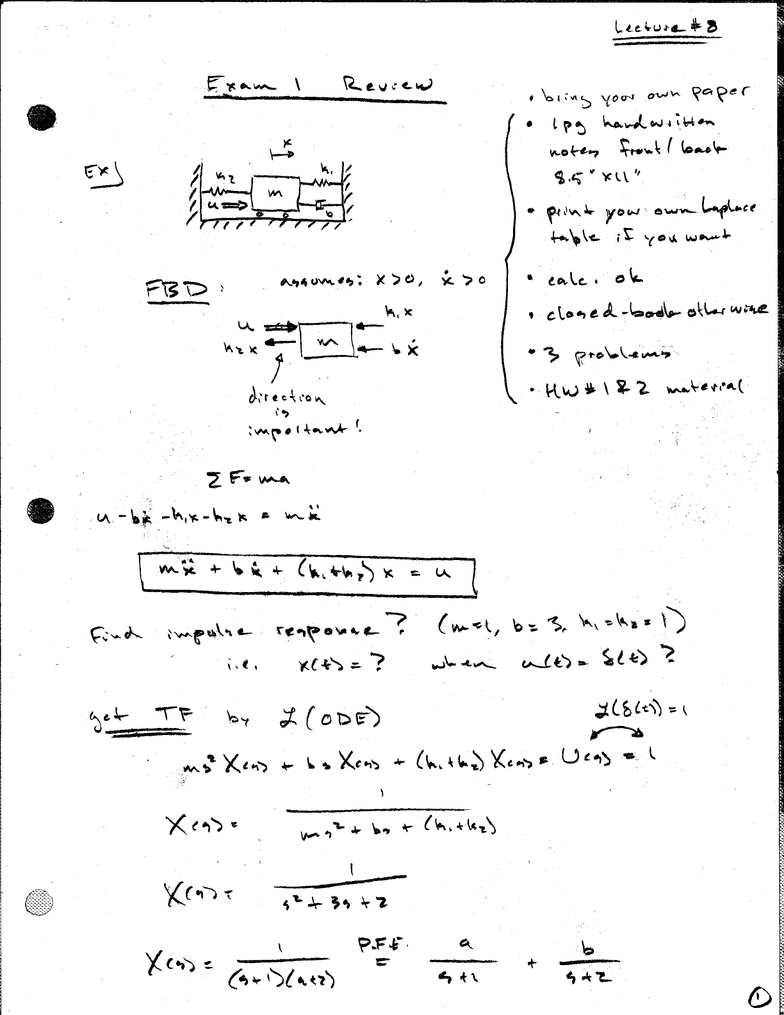 Lecture #8
Exam 1 Review
• bring your own paper
• 1pg handwritten
notes front/back
8.5"x11"
• print your own Laplace
table if you want
• calc. ok
• closed-book otherwise
• 3 problems
• HW#1&2 material
EX)
x
k₂
m
k₁
u
b
FBD: assumes: x>0, ẋ>0
u
k₁x
k₂x
m
bẋ
direction
is
important!
ΣF=ma
u-bẋ-k₁x-k₂x = mẍ
mẍ + bẋ + (k₁+k₂)x = u
Find impulse response? (m=1, b=3, k₁=k₂=1)
i.e. x(t)=? when u(t)=δ(t)?
get TF by ℒ(ODE)
ℒ(δ(t))=1
ms²X(s) + bsX(s) + (k₁+k₂)X(s) = U(s) = 1
X(s) = 1/(ms² + bs + (k₁+k₂))
X(s) = 1/(s² + 3s + 2)
X(s) = 1/((s+1)(s+2)) P.F.E. = a/(s+1) + b/(s+2)
①